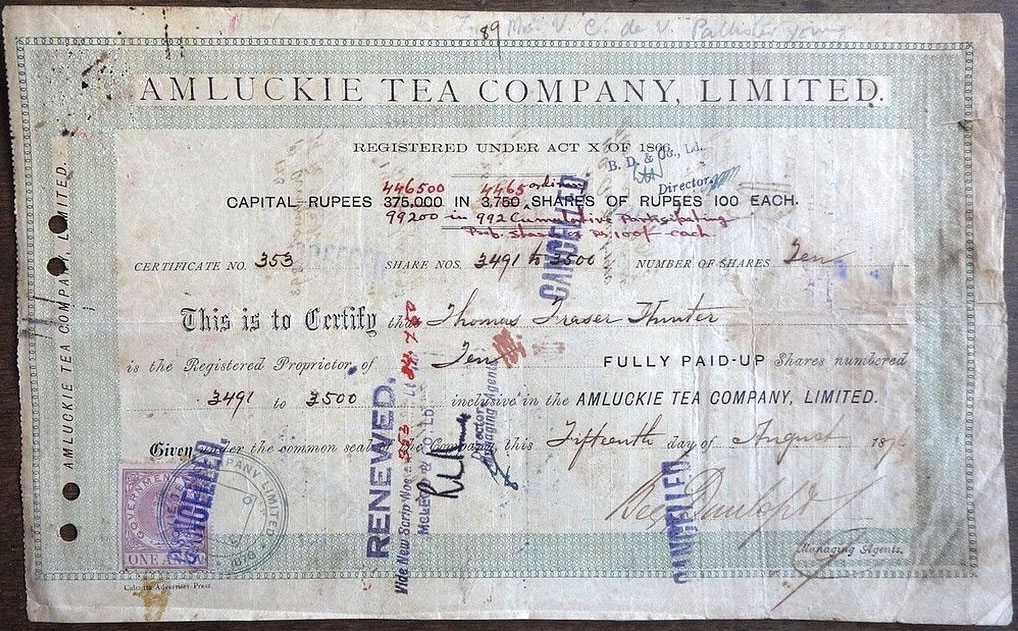 89
Mrs V. C. de V. Pallister young
AMLUCKIE TEA COMPANY, LIMITED.
REGISTERED UNDER ACT X OF 1866.
B. D. & Co., Ld.
Director
446500 4465 ordinary
CAPITAL RUPEES 375,000 IN 3,750 SHARES OF RUPEES 100 EACH.
99200 in 992 Cumulative Participating
Pref. Shares Rs. 100/- each.
CERTIFICATE NO. 353 SHARE NOS. 3491 to 3500 NUMBER OF SHARES Ten
CANCELLED
This is to Certify that Thomas Fraser Hunter
is the Registered Proprietor of Ten FULLY PAID-UP Shares numbered
3491 to 3500 inclusive in the AMLUCKIE TEA COMPANY, LIMITED.
Given under the common seal of the Company, this Fifteenth day of August 187
RENEWED.
Vide New Scrip Nos.
Director
Managing Agents
CANCELLED.
CANCELLED
GOVERNMENT
ONE ANNA
COMPANY LIMITED
Managing Agents.
Calcutta Advertiser Press
AMLUCKIE TEA COMPANY, LIMITED.